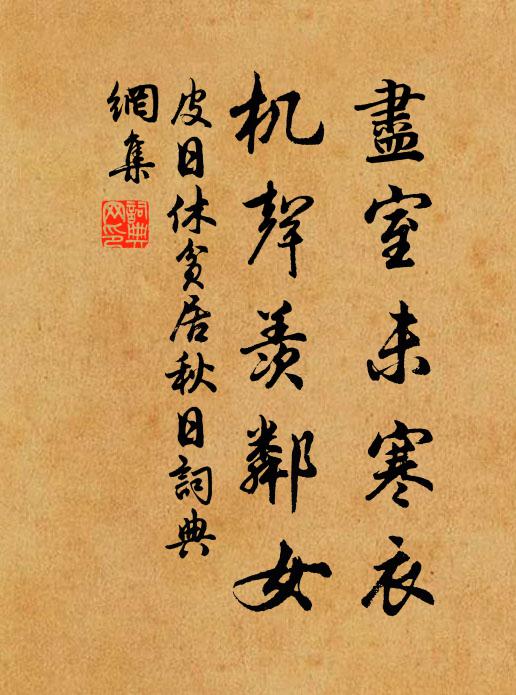 盡室未寒衣
机聲羨鄰女
皮日休貧居秋日詞典
網集
詞典
网印